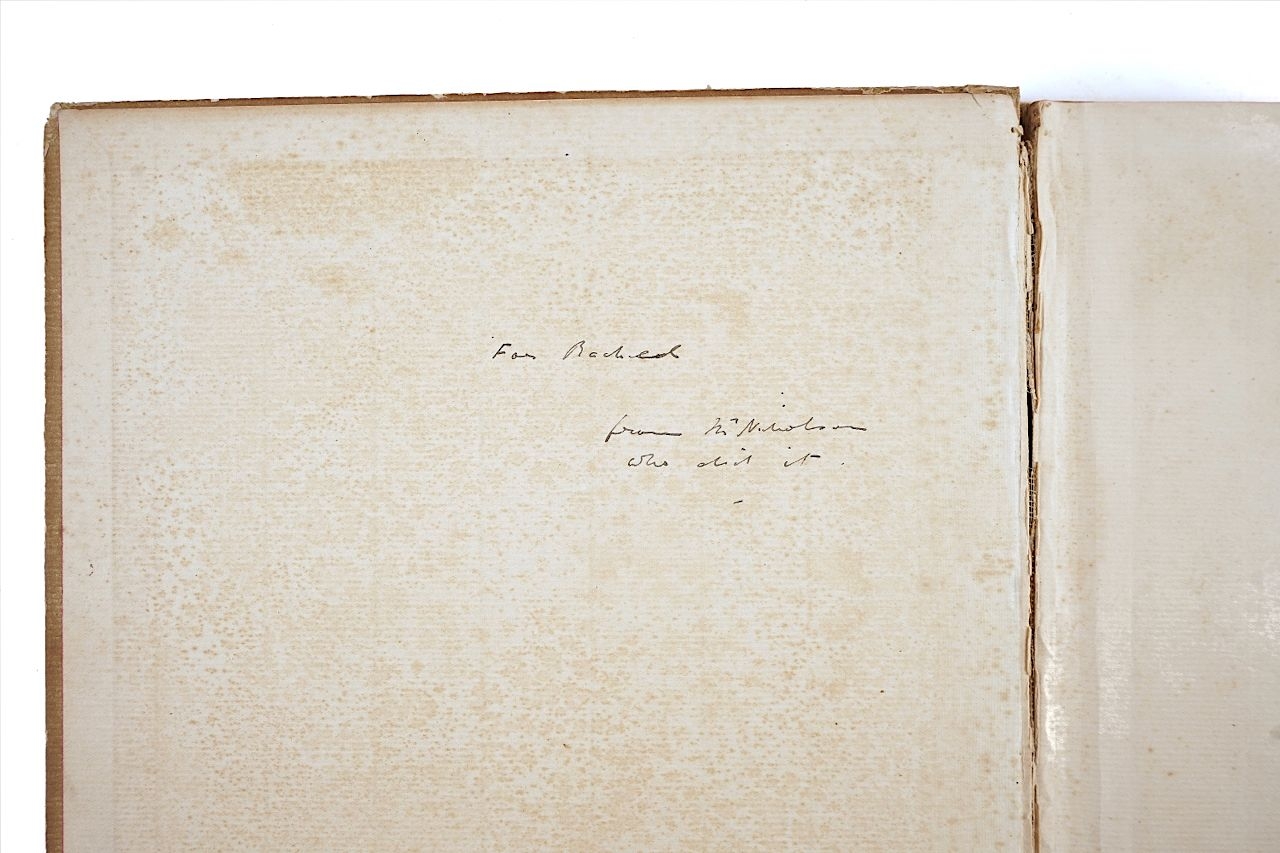 For Rachel
from Mr Nicholson
who did it.